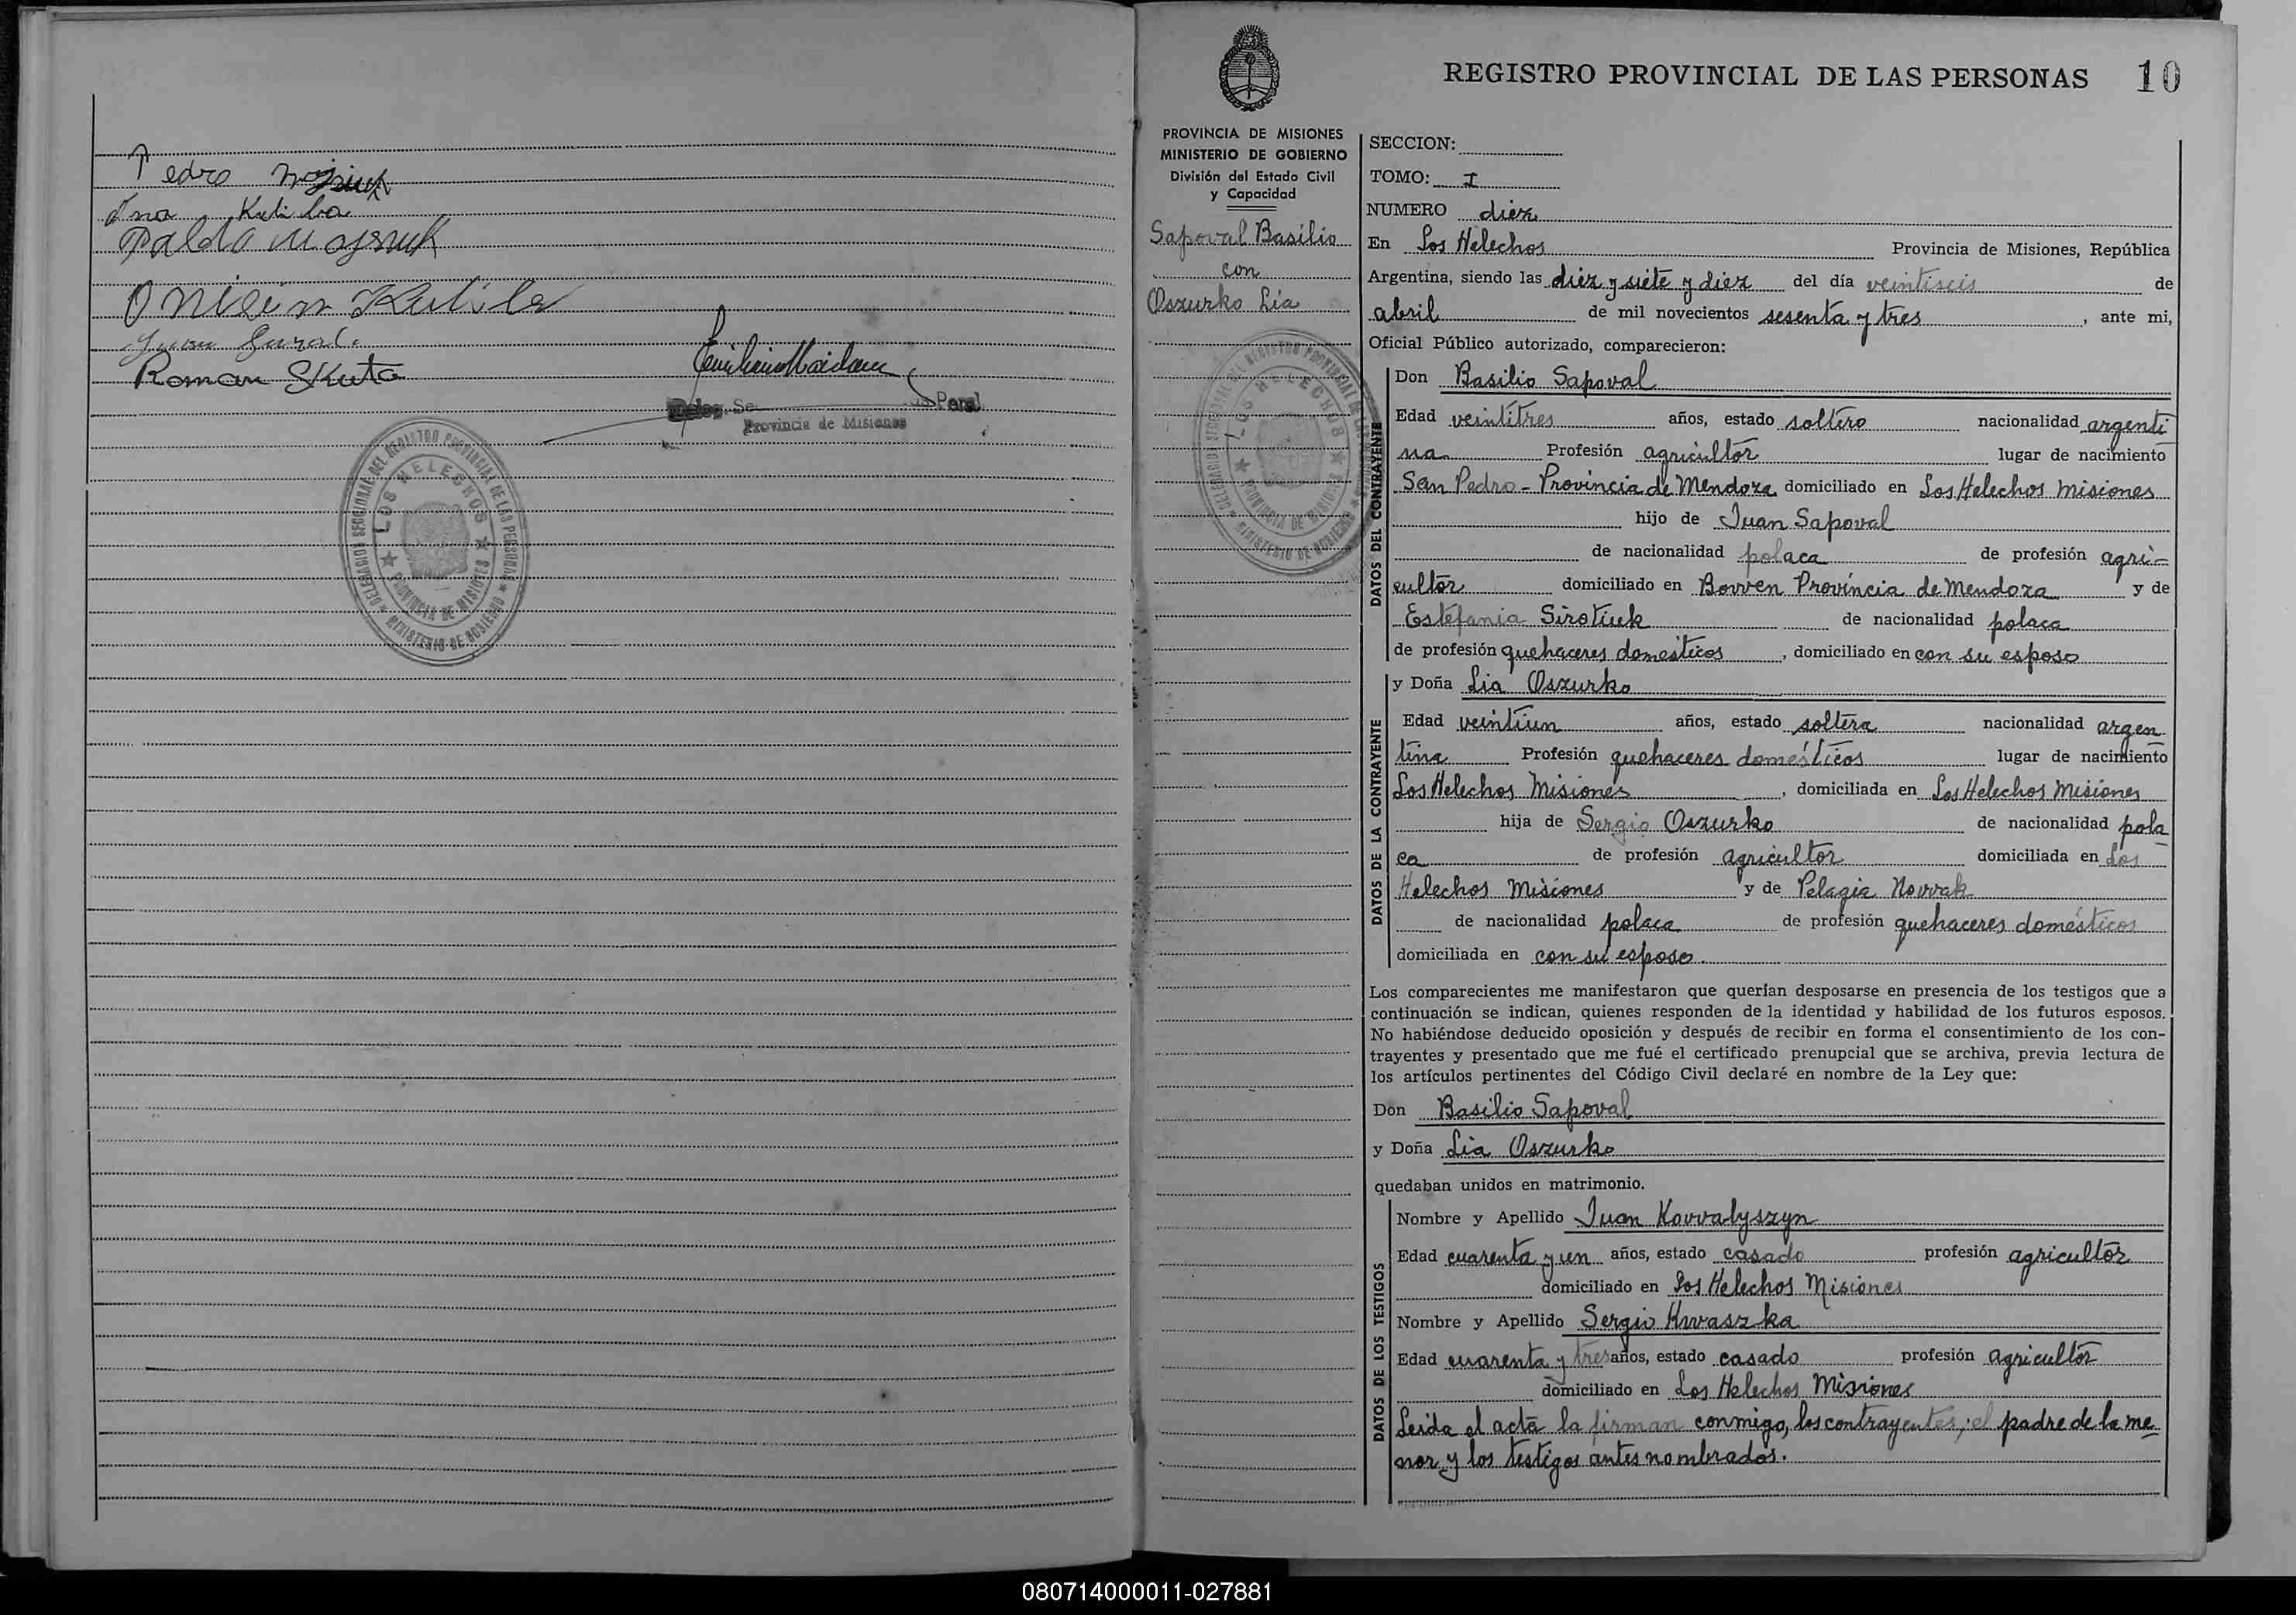 Pedro
Ina Kuliba
Onisim Kuliba
Roman Skuta
Provincia de Misiones
DELEGACION SECCIONAL DEL REGISTRO PROVINCIAL DE LAS PERSONAS
LOS HELECHOS
PROVINCIA DE MISIONES
MINISTERIO DE GOBIERNO
REGISTRO PROVINCIAL DE LAS PERSONAS 10
PROVINCIA DE MISIONES
MINISTERIO DE GOBIERNO
División del Estado Civil
y Capacidad
Sapoval Basilio
con
Oszurko Lia
DELEGACION SECCIONAL DEL REGISTRO PROVINCIAL DE LAS PERSONAS
LOS HELECHOS
PROVINCIA DE MISIONES
MINISTERIO DE GOBIERNO
SECCION:
TOMO: I
NUMERO diez
En Los Helechos Provincia de Misiones, República
Argentina, siendo las diez y siete y diez del día veintiseis de
abril de mil novecientos sesenta y tres, ante mi,
Oficial Público autorizado, comparecieron:
DATOS DEL CONTRAYENTE
Don Basilio Sapoval
Edad veintitres años, estado soltero nacionalidad argenti
na Profesión agricultor lugar de nacimiento
San Pedro - Provincia de Mendoza domiciliado en Los Helechos Misiones
hijo de Juan Sapoval
de nacionalidad polaca de profesión agri-
cultor domiciliado en Bowen Provincia de Mendoza y de
Estefania Sirotiuk de nacionalidad polaca
de profesión quehaceres domésticos, domiciliado en con su esposo
DATOS DE LA CONTRAYENTE
y Doña Lia Oszurko
Edad veintiun años, estado soltera nacionalidad argen
tina Profesión quehaceres domésticos lugar de nacimiento
Los Helechos Misiones, domiciliada en Los Helechos Misiones
hija de Sergio Oszurko de nacionalidad pola
ca de profesión agricultor domiciliada en Los
Helechos Misiones y de Pelagia Nowak
de nacionalidad polaca de profesión quehaceres domésticos
domiciliada en con su esposo.
Los comparecientes me manifestaron que querían desposarse en presencia de los testigos que a
continuación se indican, quienes responden de la identidad y habilidad de los futuros esposos.
No habiéndose deducido oposición y después de recibir en forma el consentimiento de los con-
trayentes y presentado que me fué el certificado prenupcial que se archiva, previa lectura de
los artículos pertinentes del Código Civil declaré en nombre de la Ley que:
Don Basilio Sapoval
y Doña Lia Oszurko
quedaban unidos en matrimonio.
DATOS DE LOS TESTIGOS
Nombre y Apellido Juan Kowalyszyn
Edad cuarenta y un años, estado casado profesión agricultor
domiciliado en Los Helechos Misiones
Nombre y Apellido Sergio Kwaszka
Edad cuarenta y tres años, estado casado profesión agricultor
domiciliado en Los Helechos Misiones
Leida el acta la firman conmigo, los contrayentes, el padre de la me
nor y los testigos antes nombrados.
080714000011-027881